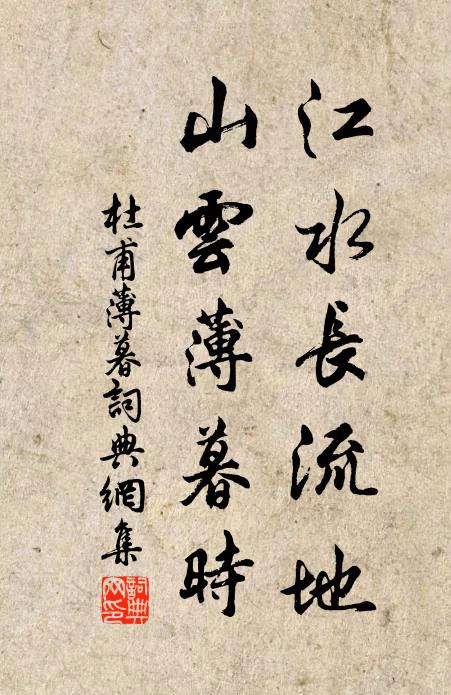 江水長流地
山雲薄暮時
杜甫薄暮詞典網集
詞典網印